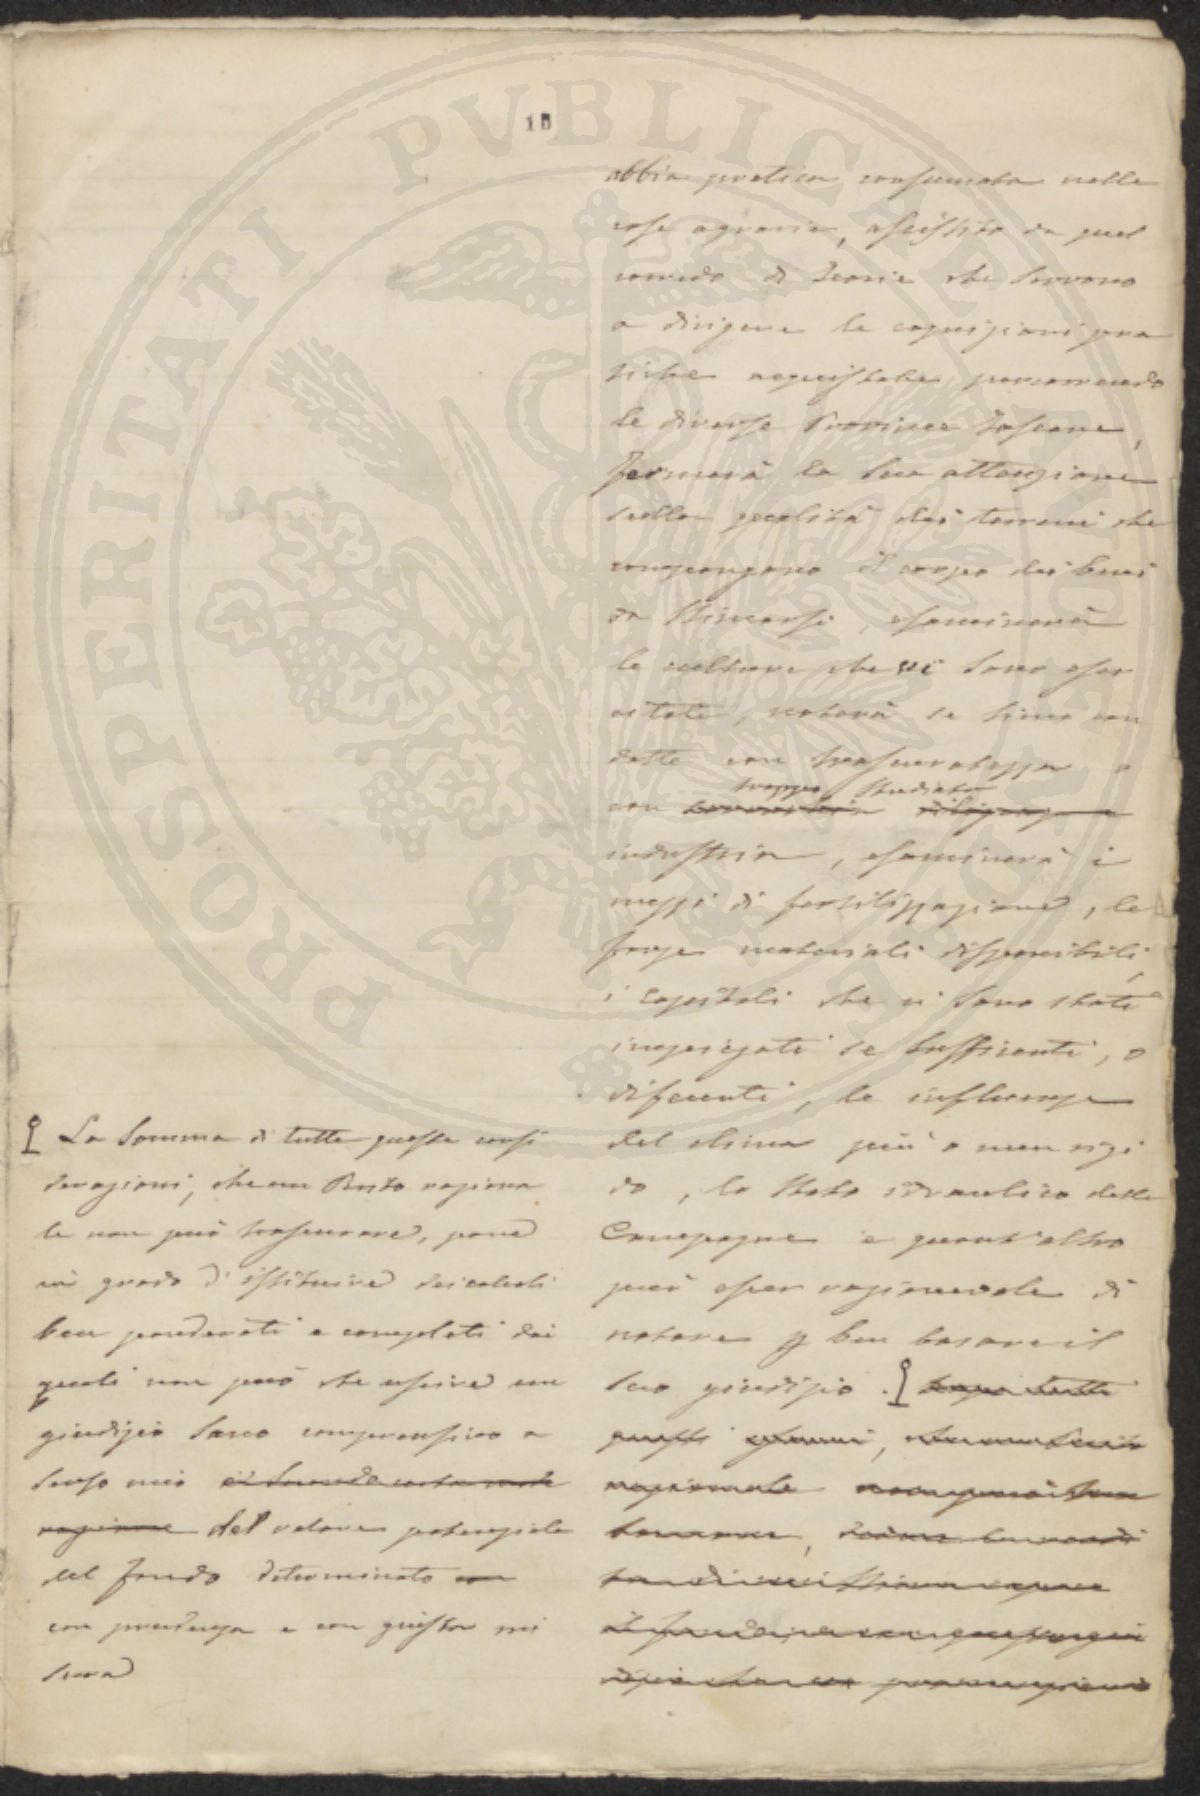 15
abbia pratica consumata nelle
cose agrarie, assistito da quel
corredo di teorie che servono
a dirigere le cognizioni pra
tiche acquistate, percorrendo
le diverse Provincie Toscane,
fermerà la sua attenzione
sulla qualità dei terreni che
compongono il corpo dei beni
da stimarsi, esaminerà
le culture che vi sono eser
citate, noterà se sieno con
dotte con trascuratezza o
con troppo studiata
industria, esaminerà i
mezzi di fertilizzazione, le
forze materiali disponibili,
i capitali che vi sono stati
impiegati se sufficienti, o
deficenti, le influenze
del clima più o men rigi
do, lo stato idraulico delle
Campagne e quant'altro
può esser ragionevole di
notare p ben basare il
suo giudizio. dopo tutti
questi esami,
razionale non può
La somma di tutte queste consi
derazioni, che un Perito raziona
le non può trascurare, pone
in grado d'istituire dei calcoli
ben ponderati e completi dai
quali non può che uscire un
giudizio sano comprensivo a
senso mio
ragione del valore potenziale
del fondo determinato con
con prudenza e con giusta mi
sura
PROSPERITATI PVBLICAE